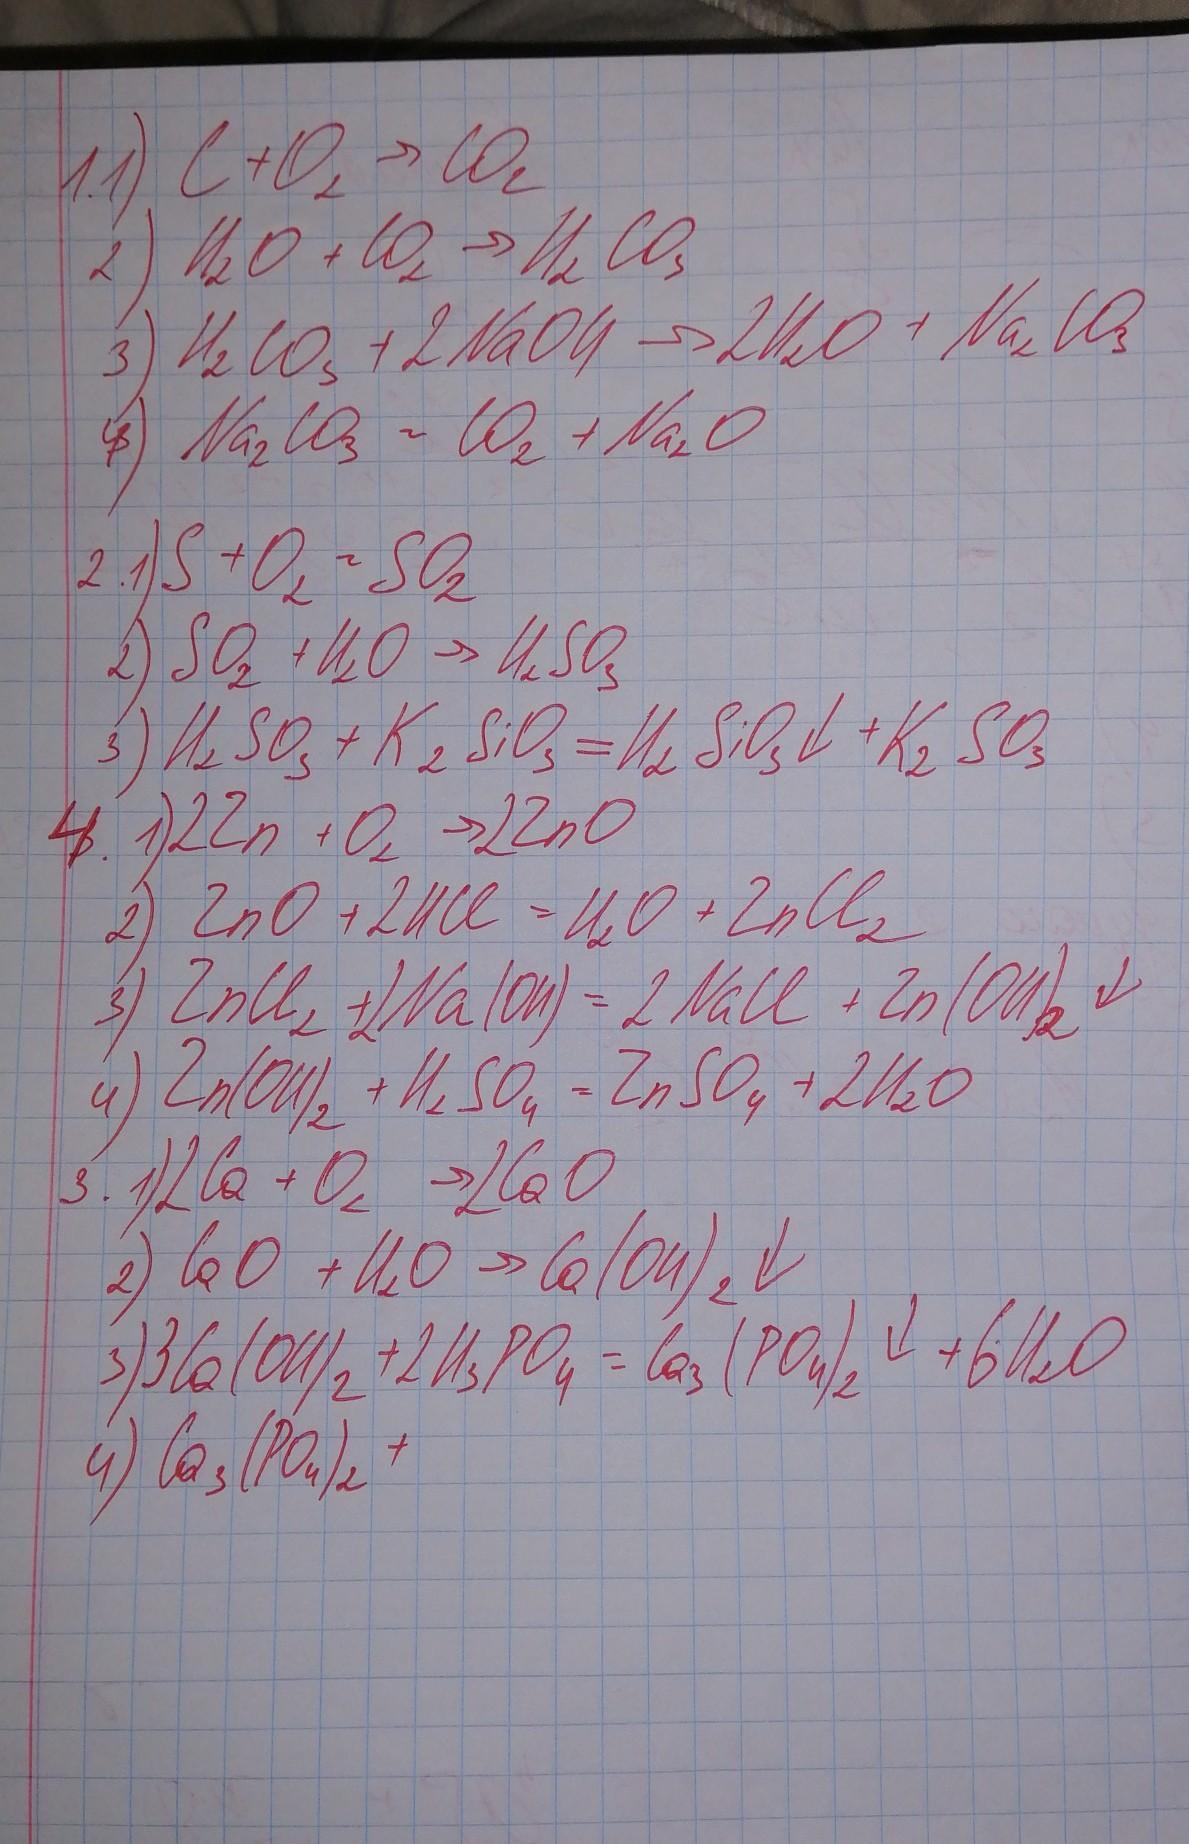 1.1) C + O₂ → CO₂
2) H₂O + CO₂ → H₂CO₃
3) H₂CO₃ + 2NaOH → 2H₂O + Na₂CO₃
4) Na₂CO₃ = CO₂ + Na₂O
2.1) S + O₂ = SO₂
2) SO₂ + H₂O → H₂SO₃
3) H₂SO₃ + K₂SiO₃ = H₂SiO₃↓ + K₂SO₃
4. 1) 2Zn + O₂ → 2ZnO
2) ZnO + 2HCl = H₂O + ZnCl₂
3) ZnCl₂ + 2Na(OH) = 2NaCl + Zn(OH)₂↓
4) Zn(OH)₂ + H₂SO₄ = ZnSO₄ + 2H₂O
3. 1) 2Ca + O₂ → 2CaO
2) CaO + H₂O → Ca(OH)₂↓
3) 3Ca(OH)₂ + 2H₃PO₄ = Ca₃(PO₄)₂↓ + 6H₂O
4) Ca₃(PO₄)₂ +